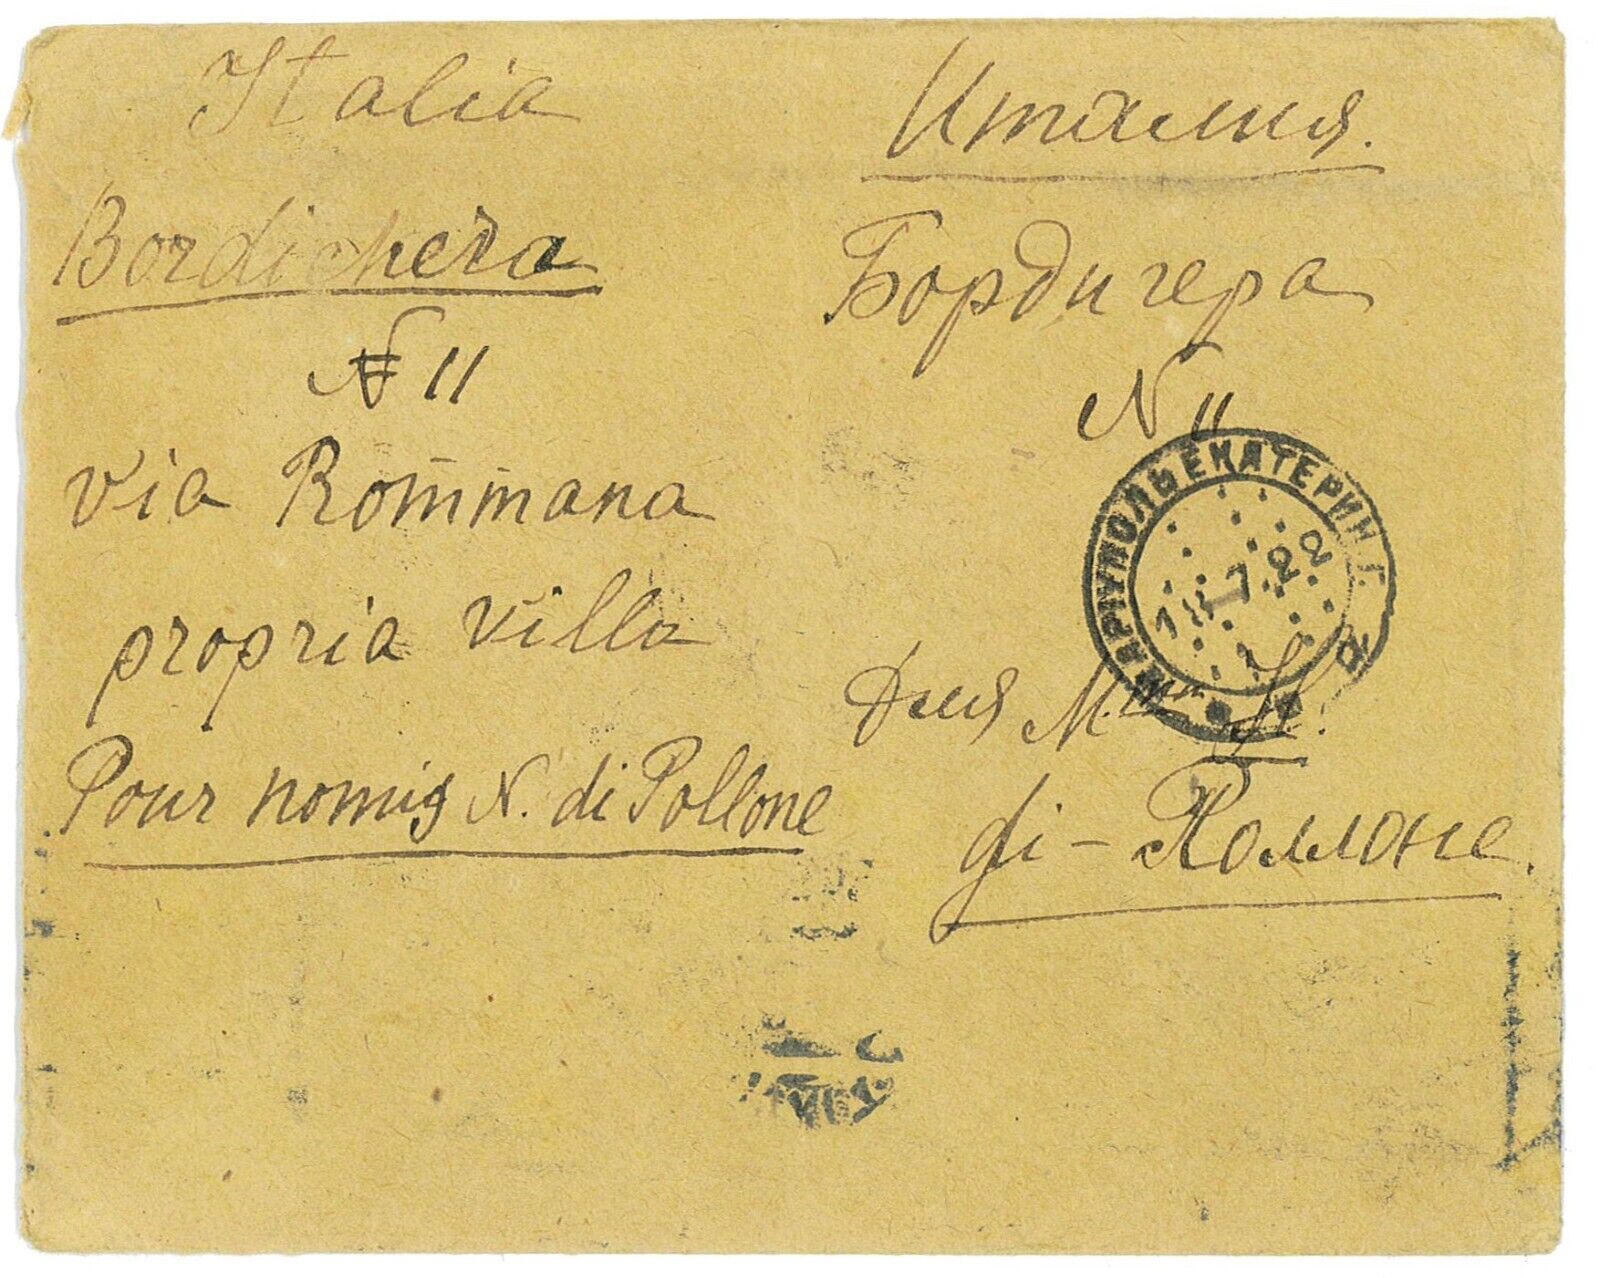 Italia
Bordichera
N 11
via Rommana
propria villa
Pour nomig N. di Pollone
Италия.
Бордигера
N 11
МАРІУПОЛЬ ЕКАТЕРИН. Г.
1 7 22
Для М.mm Н.
di - Поллоне.